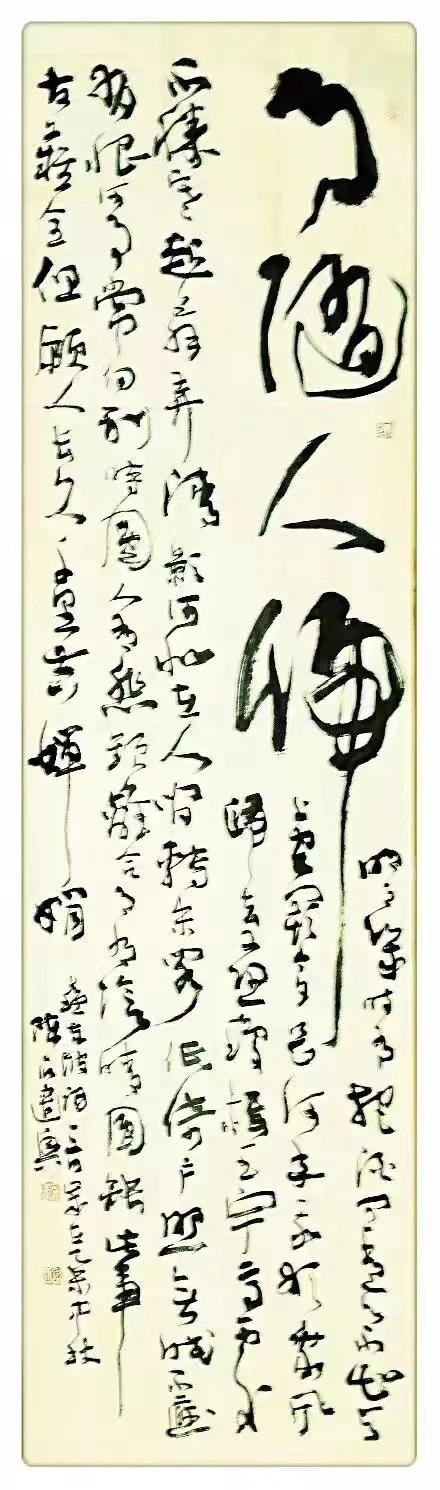 月隨人歸
明月幾時有把酒問青天不知天
上宮闕今夕是何年我欲乘風
歸去又恐瓊樓玉宇高處
不勝寒起舞弄清影何似在人間轉朱閣低綺戶照無眠不應
有恨何事常向別時圓人有悲歡離合月有陰晴圓缺此事
古難全但願人長久千里共嬋娟
東坡詞一首歲在中秋